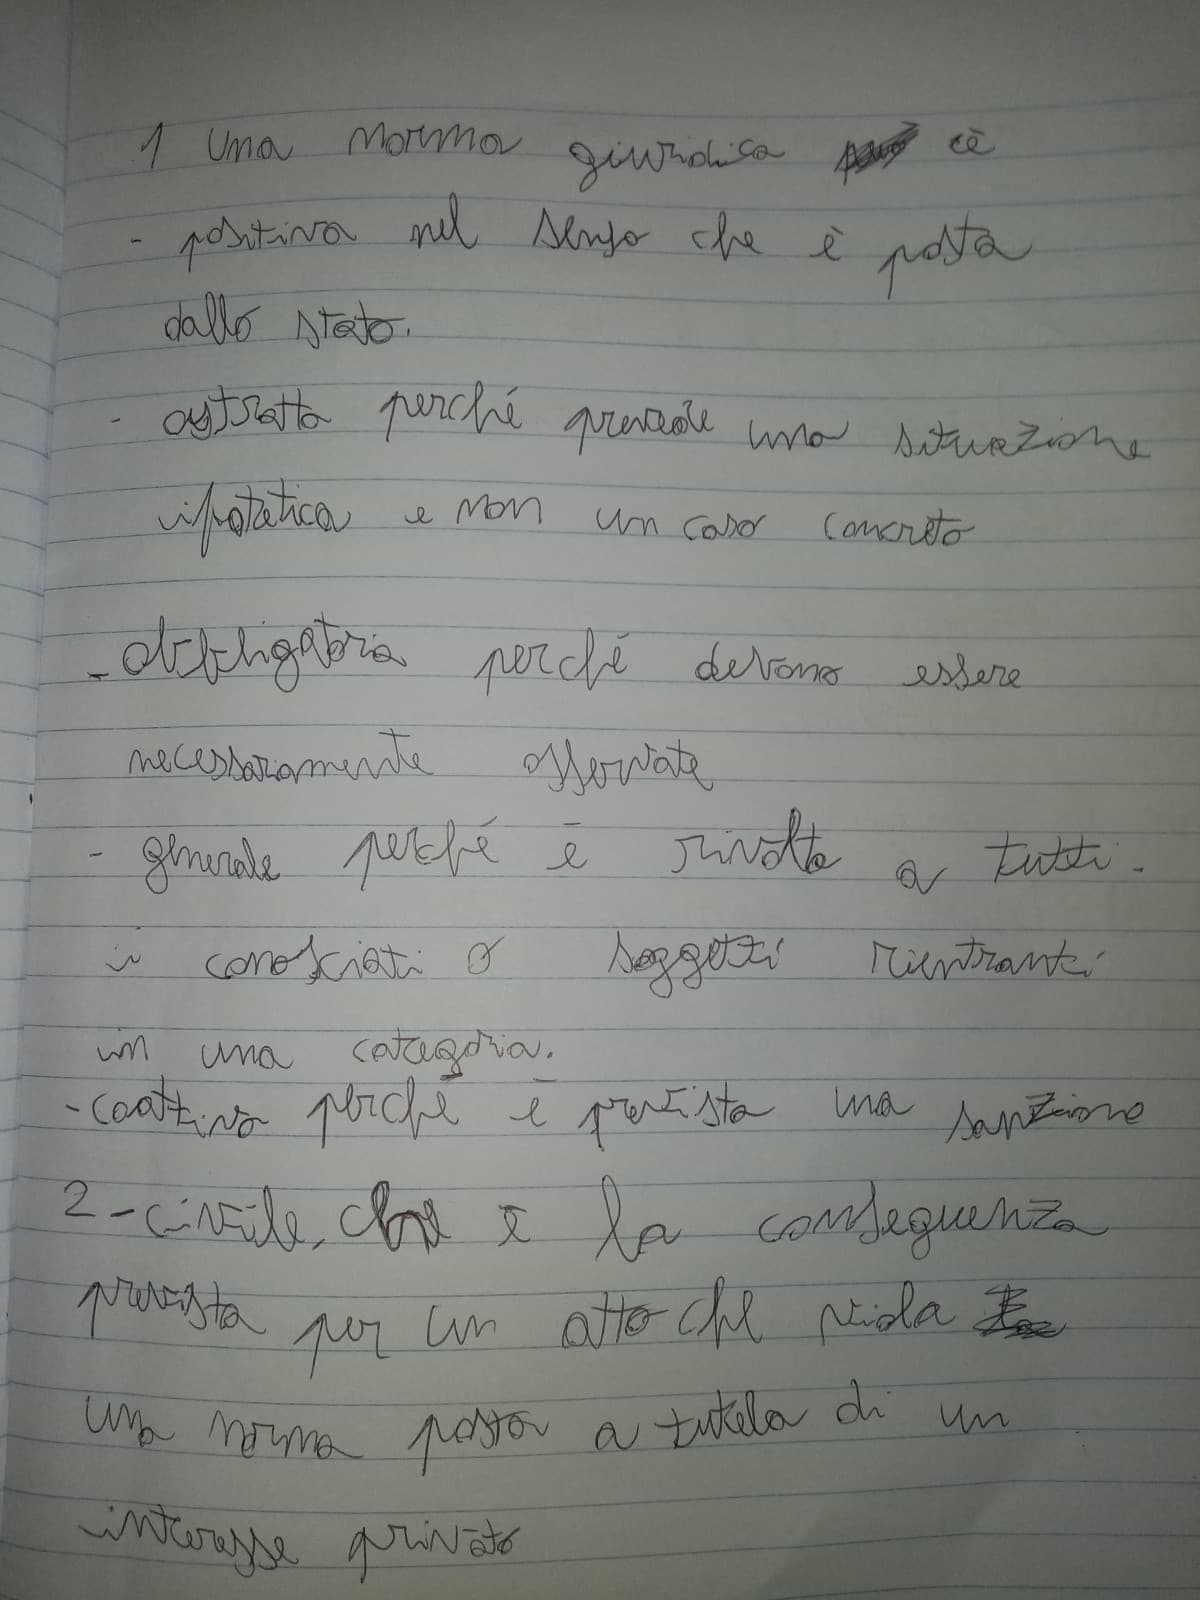 1 una norma giuridica è
- positiva nel senso che è posta
dallo stato.
- astratta perché prevede una situazione
ipotetica e non un caso concreto
- obbligatoria perché devono essere
necessariamente osservate
- generale perché è rivolta a tutti.
i consociati o soggetti rientranti
in una categoria.
- coattiva perché è prevista una sanzione
2 - civile, che è la conseguenza
prevista per un atto che viola
una norma posta a tutela di un
interesse privato